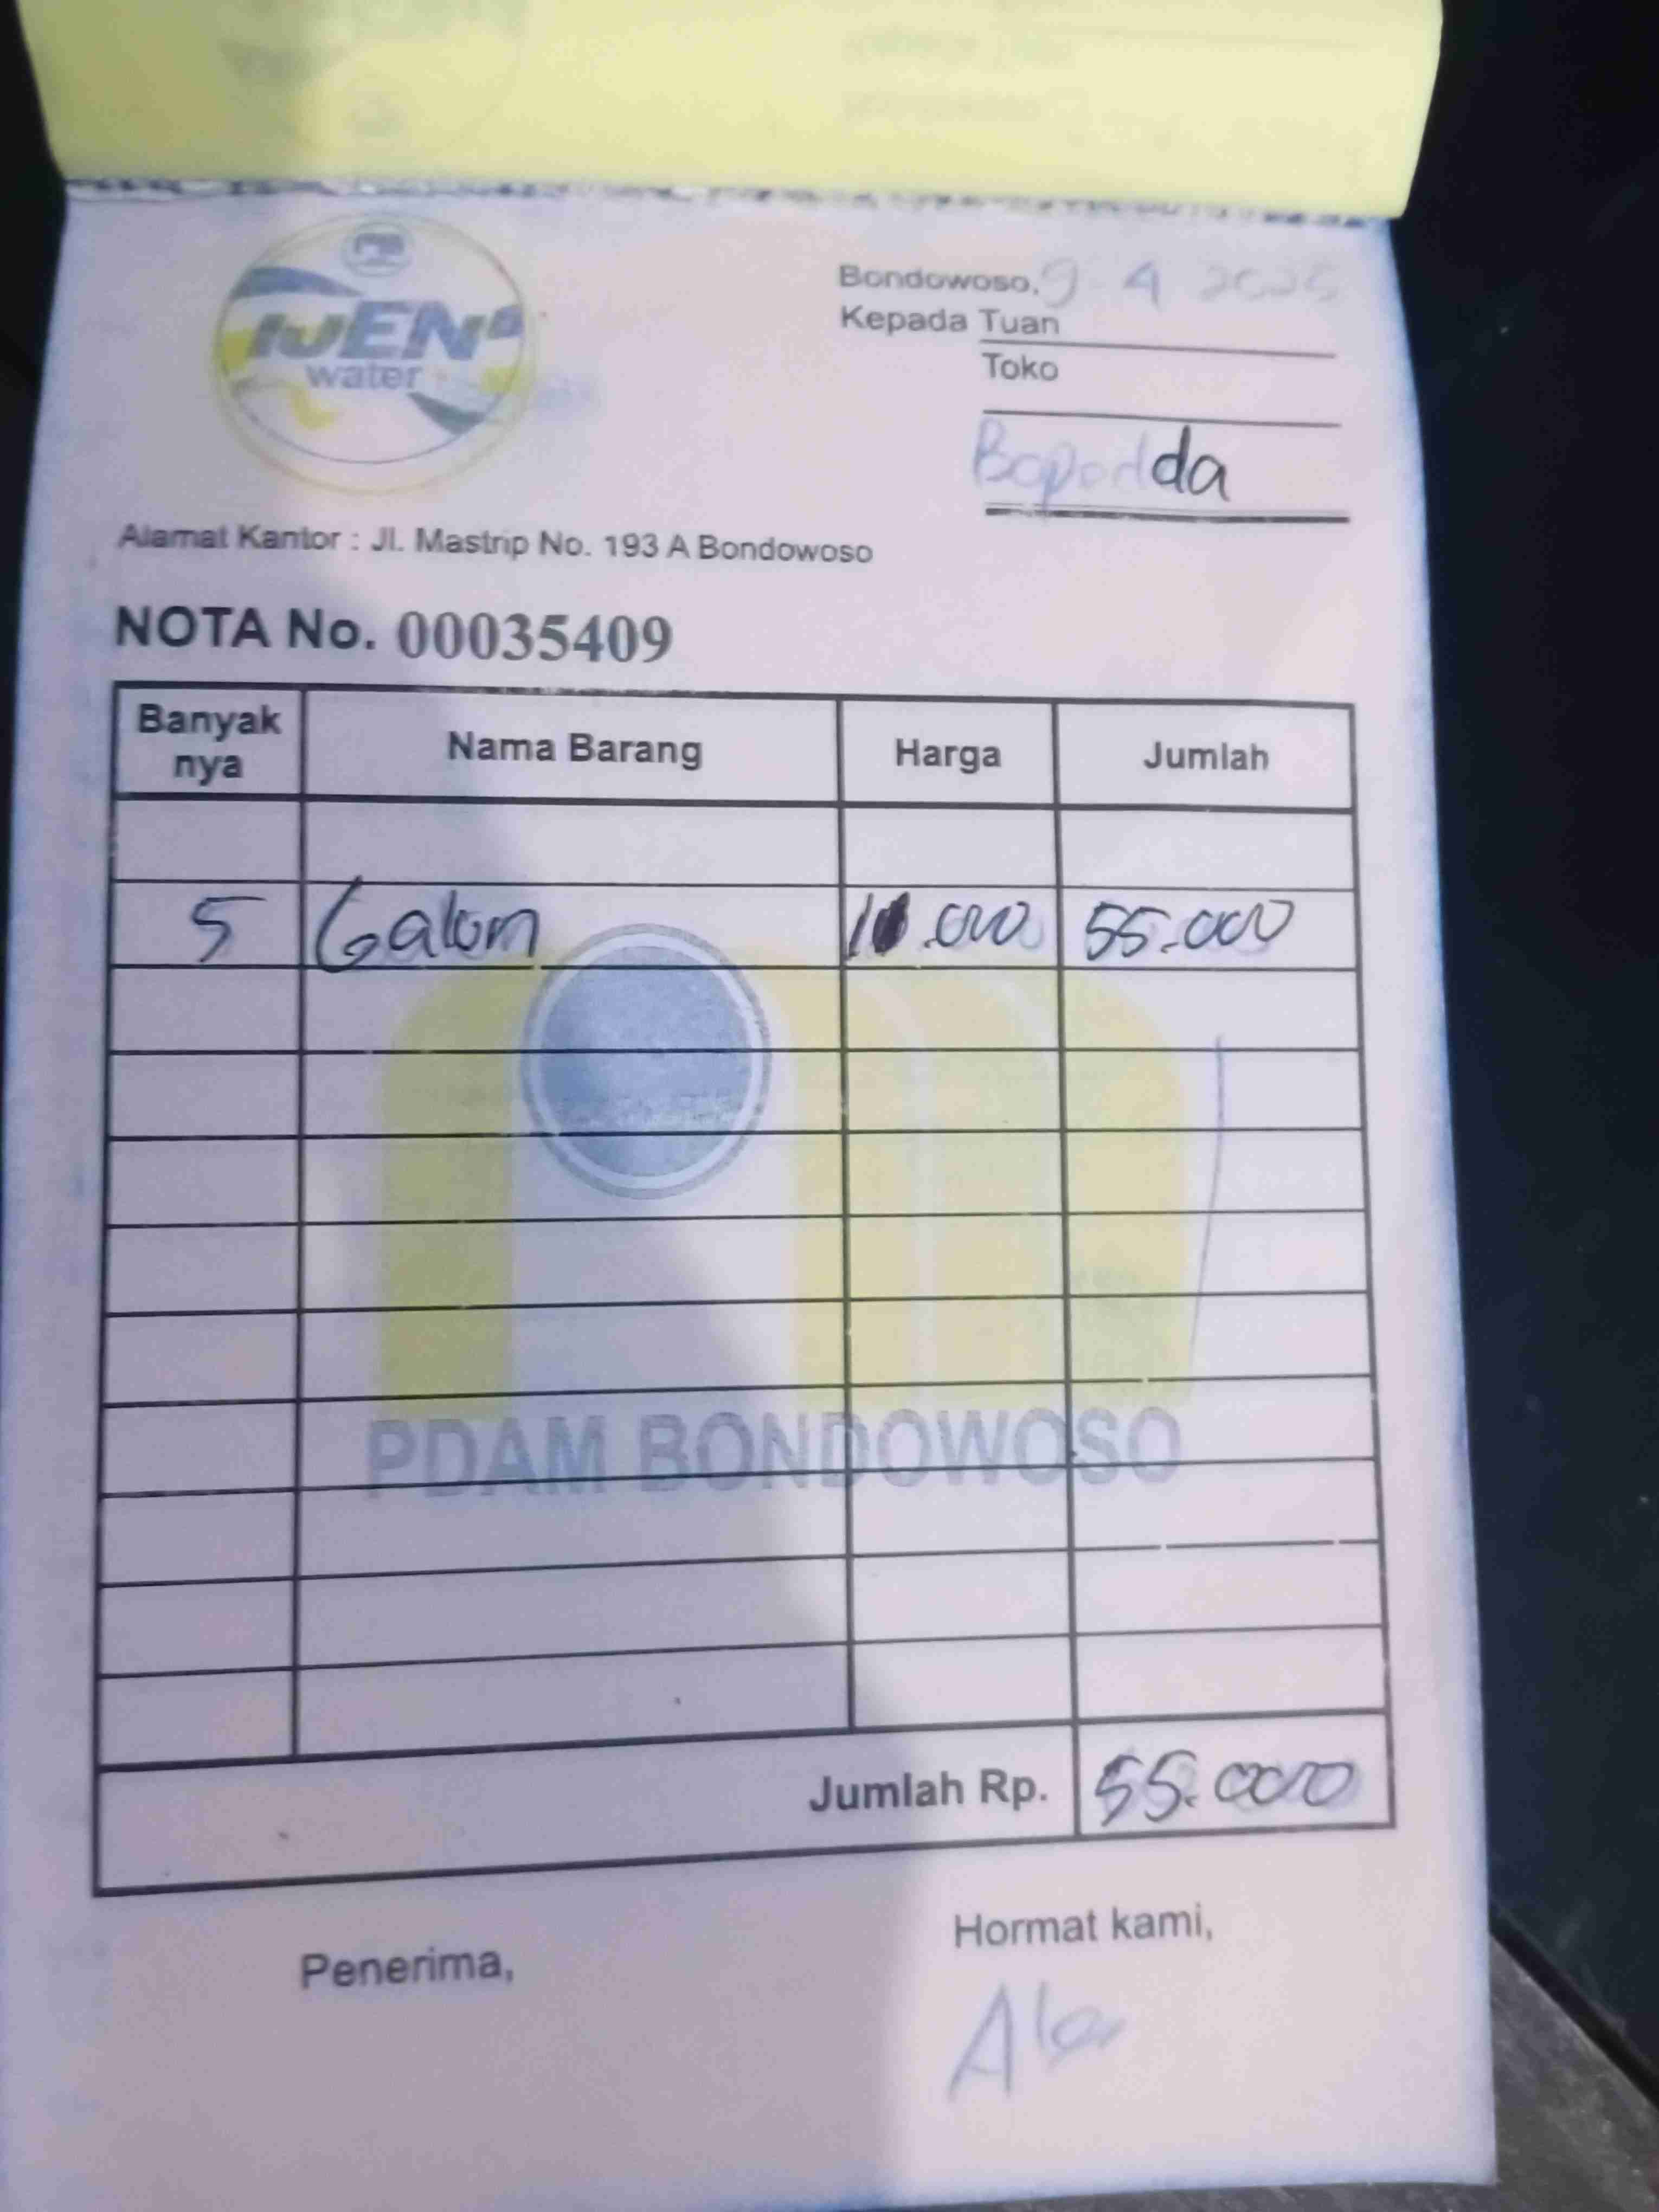 IJEN
water
Bondowoso, 9 - 4 2025
Kepada Tuan
Toko
Alamat Kantor : Jl. Mastrip No. 193 A Bondowoso
NOTA No. 00035409
Banyak nya Nama Barang Harga Jumlah
5 Galon 11.000 55.000
PDAM BONDOWOSO
Jumlah Rp. 55.000
Penerima,
Hormat kami,